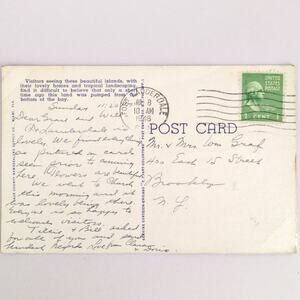 Visitors seeing these beautiful islands, with
their lovely homes and tropical landscaping
find it difficult to believe that only a short
time ago this land was pumped from the
bottom of the bay.
Sunday 11:20
Dear Grant and Will
Ft. Lauderdale is
lovely. We found everything
as pictured in cards
seen prior to coming
here. Flowers are beautiful
We went to Church
this morning and it
was lovely being there.
Everyone is so happy to
welcome visitors
Tillie & Bill asked
for all of you and send
kindest Regards. Love from
& Doris
FORT LAUDERDALE
8
10 AM
1948
UNITED STATES
POSTAGE
1 CENT 1
POST CARD
Mr. & Mrs Wm Graf
East 15 Street
Brooklyn
N.Y.